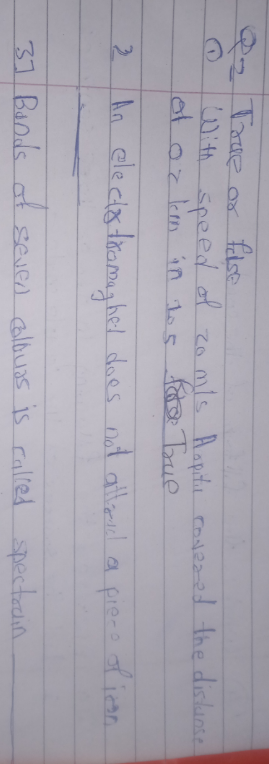 Q2 True or false
① With speed of 20 m/s Arpita covered the distance
of 0.2 km in 20 s True
2 An electromaghet does not attract a piece of iron
3] Bands of seven colours is called spectrum